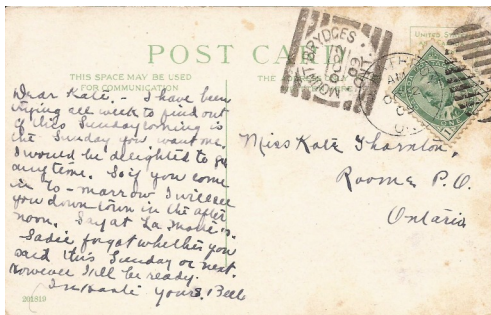 POST CARD
THIS SPACE MAY BE USED
FOR COMMUNICATION
Dear Kate. - I have been
trying all week to find out
if this Sunday coming is
the Sunday you want me.
I would be delighted to go
anytime. So if you come
in to-morrow I will see
you down town in the after
noon. Say at La
Sadie forgot whether you
said this Sunday or next.
However I'll be ready.
In haste Yours, Bell
201819
MOUNT BRYDGES
ONT
Miss Kate Thornton,
P.O.
Ontario